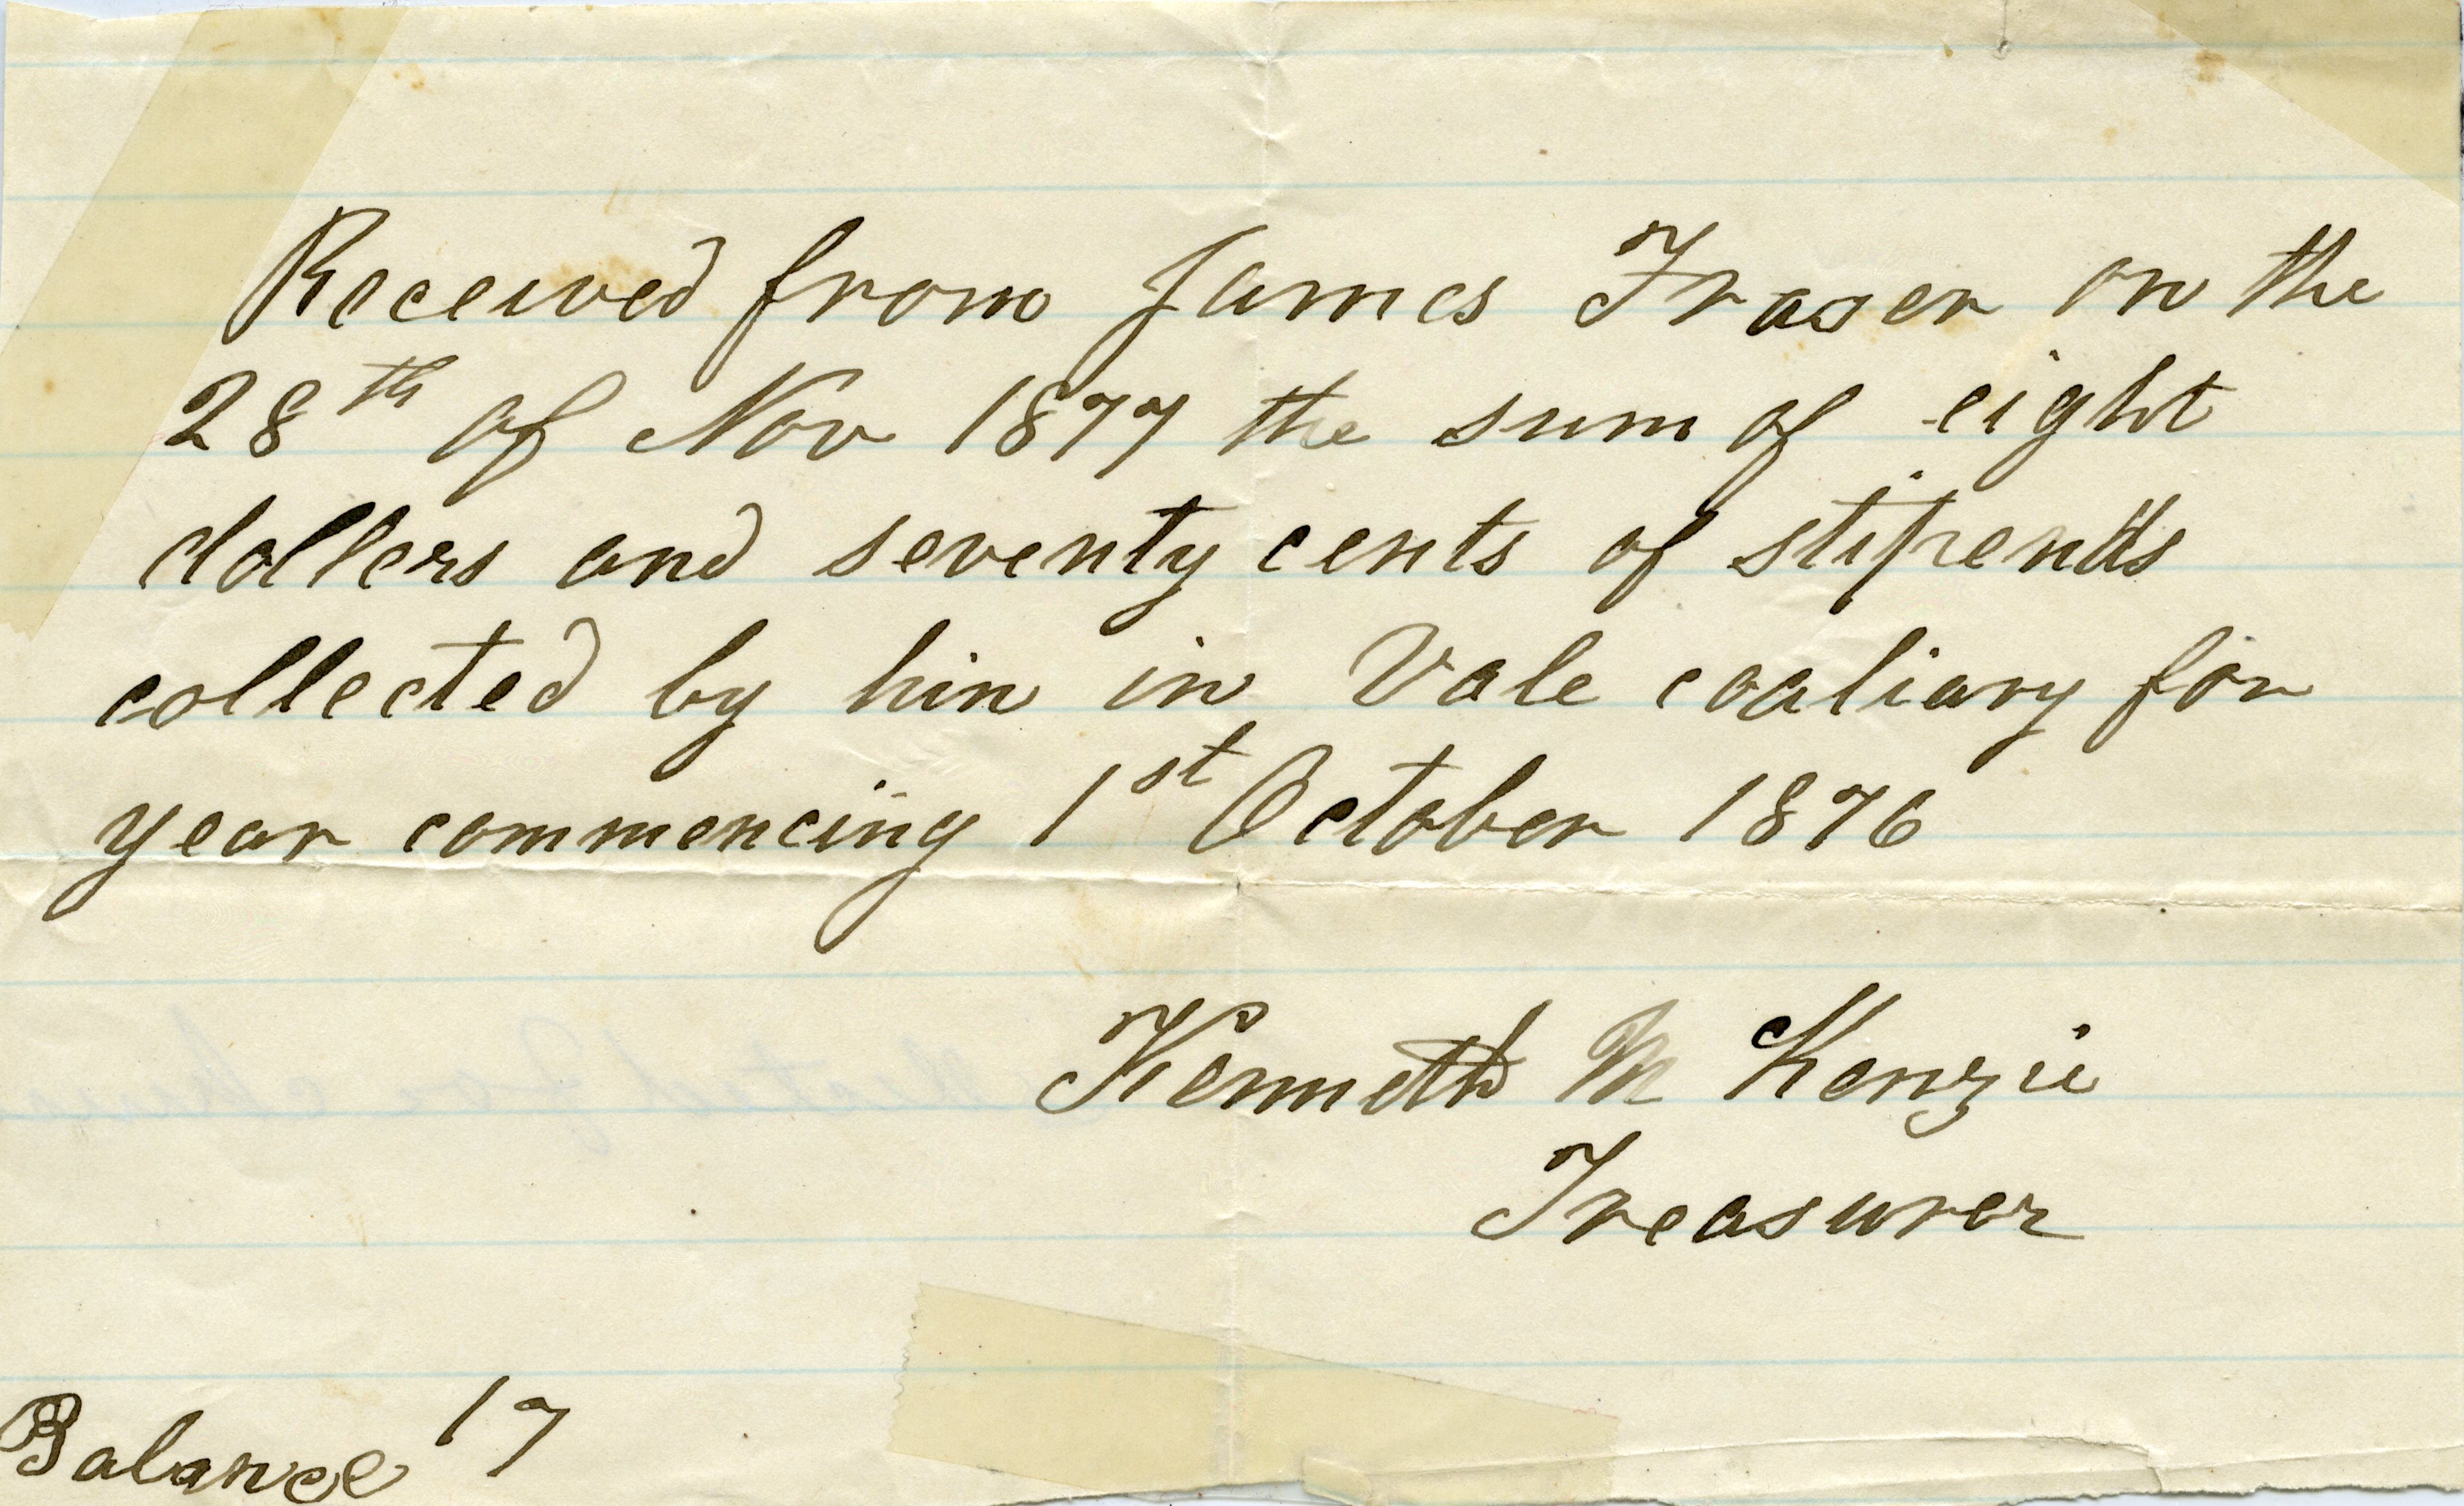 Received from James Fraser on the
28th of Nov 1877 the sum of eight
dollers and seventy cents of stipends
collected by hin in Vale coaliary for
year commencing 1st October 1876
Kenneth M Kenzie
Treasurer
Balance 17